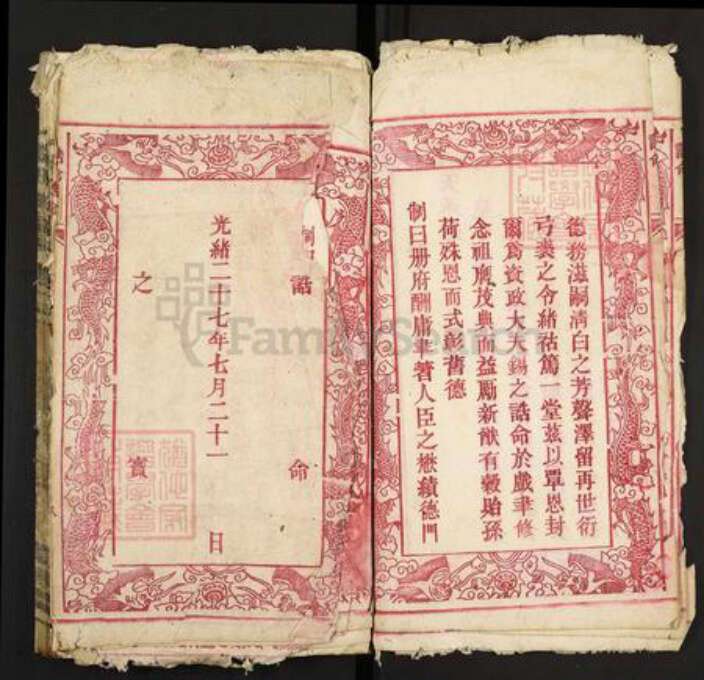 德務滋嗣清白之芳聲澤留再世衍
弓裘之令緒祜篤一堂茲以覃恩封
爾爲資政大夫錫之誥命於戲聿修
念祖膺茂典而益勵新猷有穀貽孫
荷殊恩而式彰舊德
制曰册府酬庸聿著人臣之懋績德門
制曰
誥命
光緒二十七年七月二十一日
之寶
FamilySearch